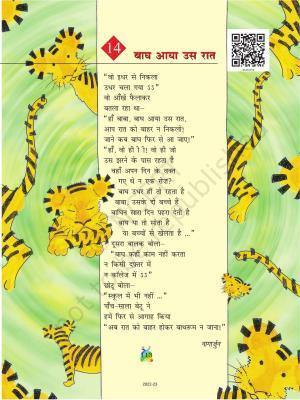 14
बाघ आया उस रात
"वो इधर से निकला
उधर चला गया ऽऽ"
वो आँखें फैलाकर
बतला रहा था-
"हाँ बाबा, बाघ आया उस रात,
आप रात को बाहर न निकलो!
जाने कब बाघ फिर से आ जाए!"
"हाँ, वो ही ! वो ही जो
उस झरने के पास रहता है
वहाँ अपन दिन के वक्त
गए थे न एक रोज़?
बाघ उधर ही तो रहता है
बाबा, उसके दो बच्चे हैं
बाघिन सारा दिन पहरा देती है
बाघ या तो सोता है
या बच्चों से खेलता है ..."
दूसरा बालक बोला-
"बाघ कहीं काम नहीं करता
न किसी दफ़्तर में
न कॉलेज में ऽऽ"
छोटू बोला-
"स्कूल में भी नहीं ..."
पाँच-साला बेटू ने
हमें फिर से आगाह किया
"अब रात को बाहर होकर बाथरूम न जाना!"
नागार्जुन
2022-23